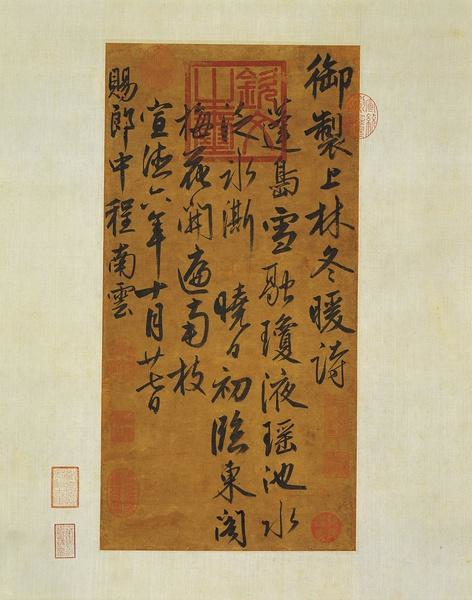 御製上林冬暖詩
蓬島雪融瓊液瑶池水
泛冰澌 曉日初臨東閣
梅花開遍南枝
宣德六年十月廿七日
賜郎中程南雲